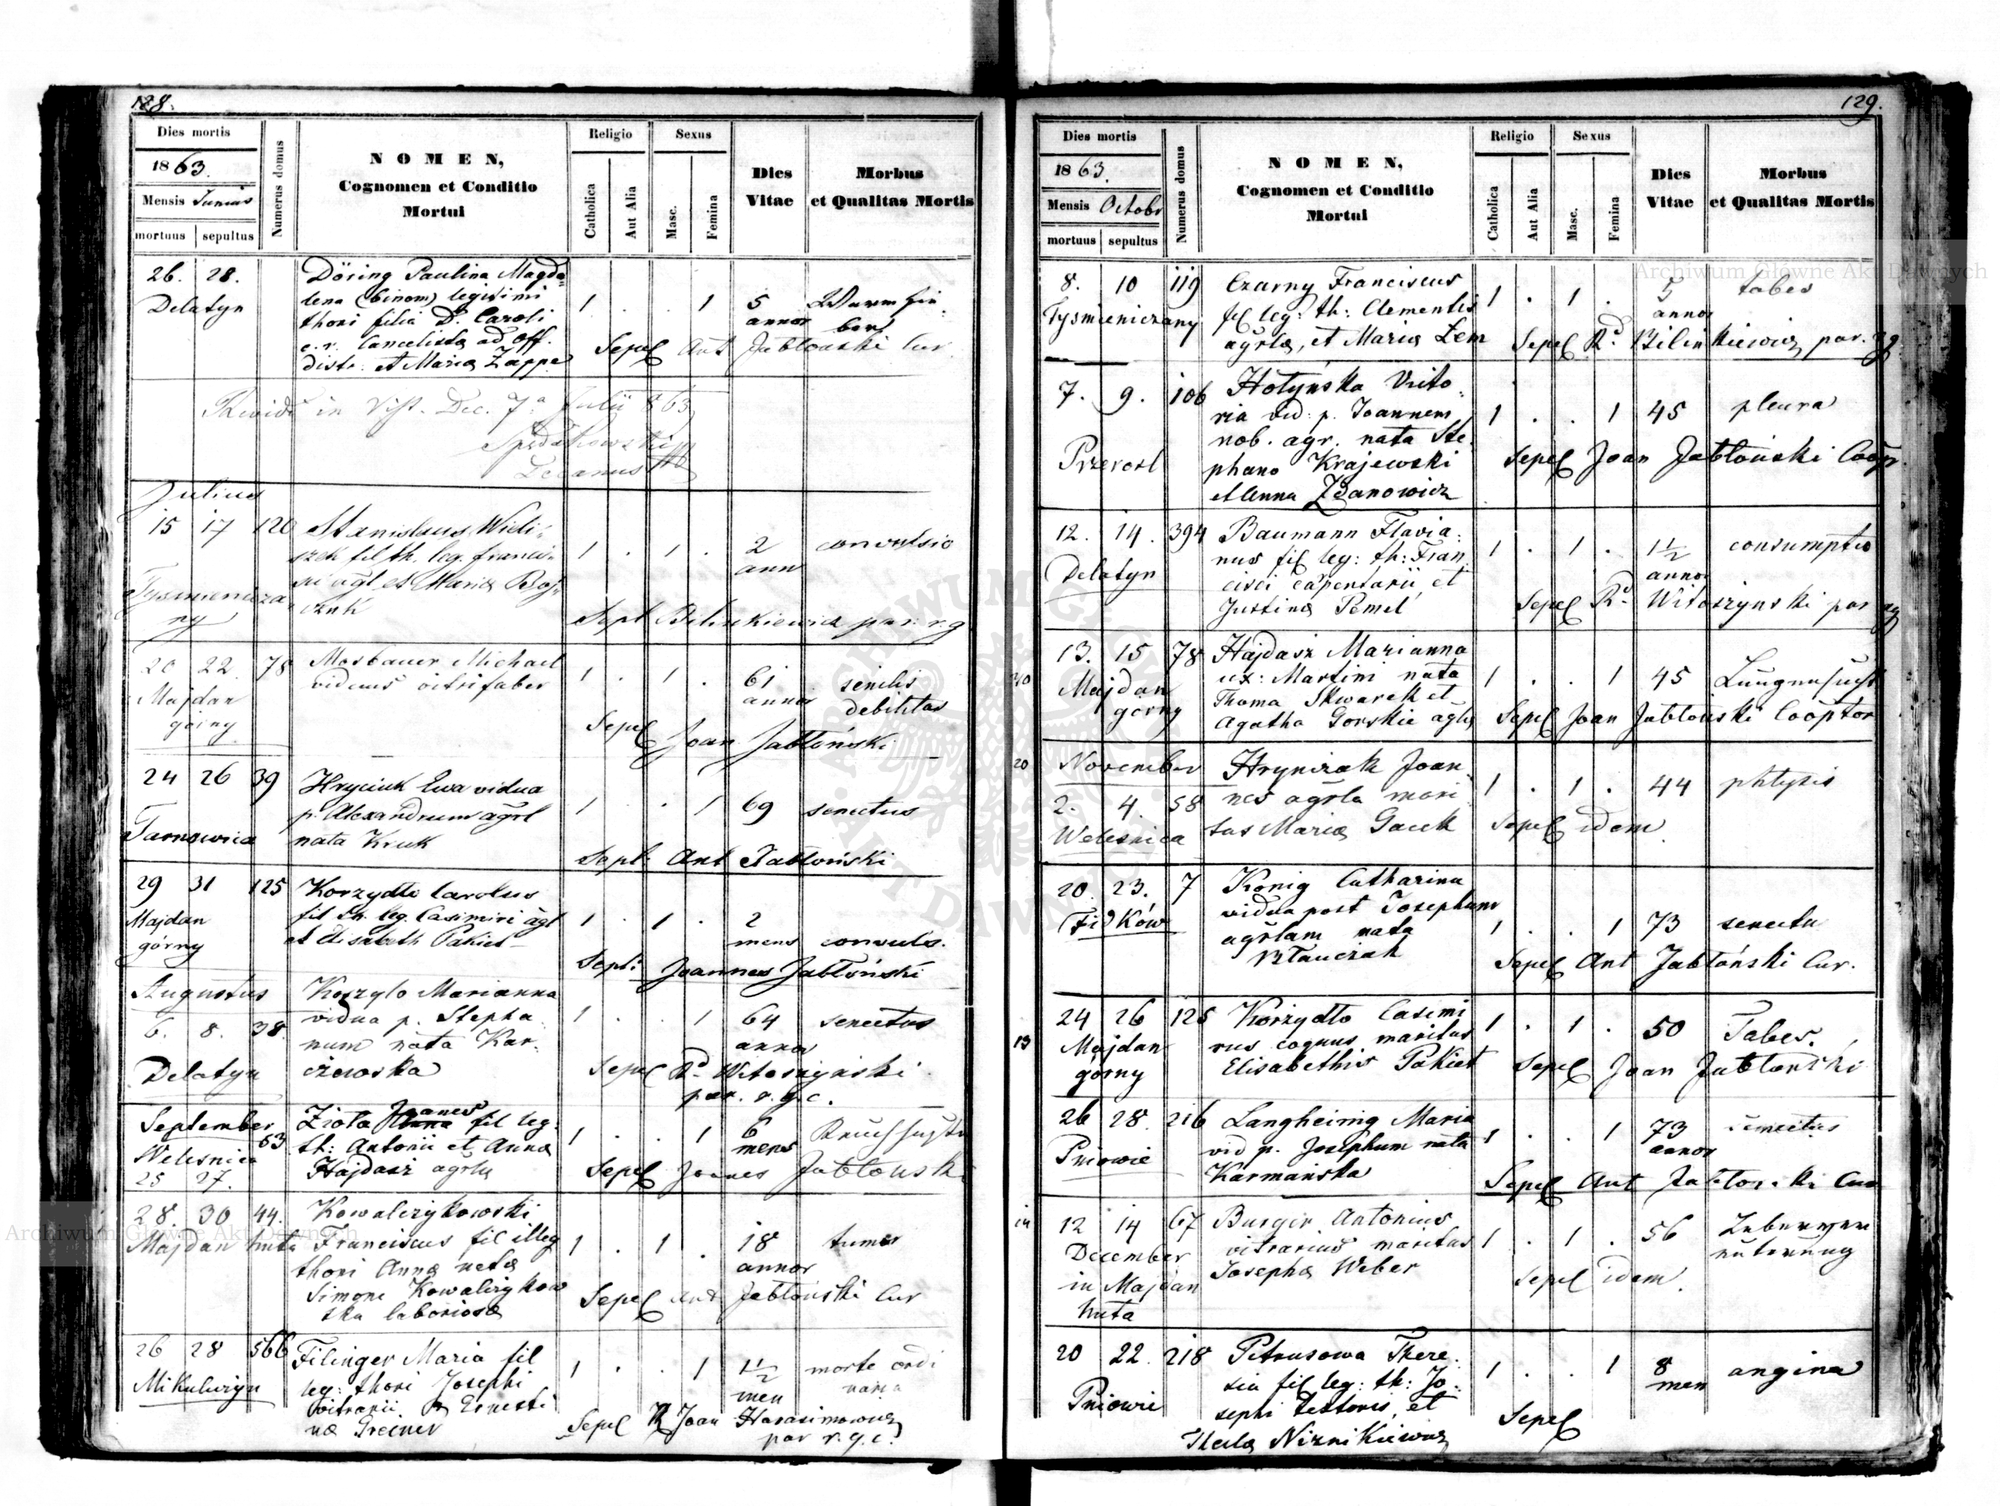 128.
Dies mortis
1863.
Mensis Junius
mortuus sepultus
Numerus domus
NOMEN,
Cognomen et Conditio
Mortui
Religio
Catholica
Aut Alia
Sexus
Masc.
Femina
Dies
Vitae
Morbus
et Qualitas Mortis
26. 28. Döring Paulina Magda
lena (binom) legitimi
Delatyn thori filia D. Caroli
c. r. Cancelista ad off.
distr. et Maria Zappe
1 . . 1 5
annor
Sepel Ant Jabłonski Cur
in Visit. Dec. 7a Julii 863
Decanus
Julius
15 17 120 Stanislaus Wieli-
szek fil th. leg. Franci-
sci agl et Maria Boj-
czuk
Tysmienicza
ny
1 . 1 . 2
ann
convulsio
Sept Bilinkiewicz par. r. g
20 22 78 Mosbauer Michael
viduus vitrifaber
Majdan
górny
1 . 1 . 61
annor
senilis
debilitas
Sepel Joan Jabłoński
24 26 39 Hryciuk Ewa vidua
p. Alexandrum agrl
nata Kruk
Tarnowica
1 . . 1 69 senectus
Sept: Ant Jabłoński
29 31 125 Korzydło Carolus
fil th. leg. Casimiri agl
et Elisabeth Pakiet
Majdan
górny
1 . 1 . 2
mens convuls.
Sept: Joannes Jabłoński
Augustus
6. 8. 38. Koszyło Marianna
vidua p. Stepha
num nata Kar-
czewska
Delatyn
1 . . 1 64
annor
senectus
Sepel Rd Witoszyński
par. r. g. c.
September
63 Zioła Joanes fil leg:
th: Antonii et Anna
Hajdasz agrla
Welesnica
25 27.
1 . . 1 6
mens
Sepel Joanes Jabłonski
28. 30 44. Kowalczykowski
Majdan huta Franciscus fil illeg
thori Anna nata
Simone Kowalczykow
ska laboriosa
1 . 1 . 18
annor
tumor
Sepel Ant Jabłonski Cur
26 28 566 Filinger Maria fil
leg: thori Josephi
vitrarii & Ernesti
na Greiner
Mikuliczyn
1 . . 1 1½
men
morte ordi
naria
Sepel R Joan Harasimowicz
par r. g. c.
129.
Dies mortis
1863.
Mensis Octobr
mortuus sepultus
Numerus domus
NOMEN,
Cognomen et Conditio
Mortui
Religio
Catholica
Aut Alia
Sexus
Masc.
Femina
Dies
Vitae
Morbus
et Qualitas Mortis
8. 10 119 Czarny Franciscus
fil leg: th: Clementis
agrla, et Maria Zem
Tysmieniczany
1 . 1 . 5
annor
tabes
Sepel Rd Bilinkiewicz par. rg
7. 9. 106 Hołyńska Victo-
ria vid: p. Joannem
nob. agr. nata Ste-
phano Krajewski
et Anna Zdanowicz
Przerosl
1 . . 1 45 pleura
Sepel Joan Jabłoński Coopr.
12. 14. 394 Baumann Flavia-
nus fil leg: th: Fran
cisci carpentarii, et
Justina Pemel
Delatyn
1 . 1 . 1½
annor
consumptio
Sepel Rd Witoszynski par rg
13. 15 78 Hajdasz Marianna
ux: Martini nata
Thoma Skwarek et
Agatha Gorskie agrla
Majdan
górny
1 . . 1 45 Lungensucht
Sepel Joan Jabłoński Cooptor
20 November
2. 4. 58 Hrynizak Joan-
nes agrla mari
tus Maria Gacek
Welesnica
1 . 1 . 44 phtysis
Sepel idem
20. 23. 7 König Catharina
vidua post Josephum
agrlam nata
Błauczak
Fidków
1 . . 1 73 senectu
Sepel Ant Jabłoński Cur.
24 26 125 Korzydło Casimi
rus cognus maritus
Elisabethis Pakiet
13 Majdan
górny
1 . 1 . 50 Tabes.
Sepel Joan Jabłoński
26 28. 216 Langheinig Maria
vid p. Josephum nata
Karmańska
Pniowie
1 . . 1 73
annor
senectus
Sepel Ant Jabłonski Cur
14 12 14 67 Burger Antonius
vitrarius maritus
Josepha Weber
December
in Majdan
huta
1 . 1 . 56
Sepel idem.
20 22. 218 Petrusowa There-
sia fil leg: th: Jo-
sephi textoris, et
Thecla Niznikiewicz
Pniowie
1 . . 1 8
men
angina
Sepel
Archiwum Główne Akt Dawnych
Archiwum Główne Akt Dawnych
ARCHIWUM GŁÓWNE AKT DAWNYCH